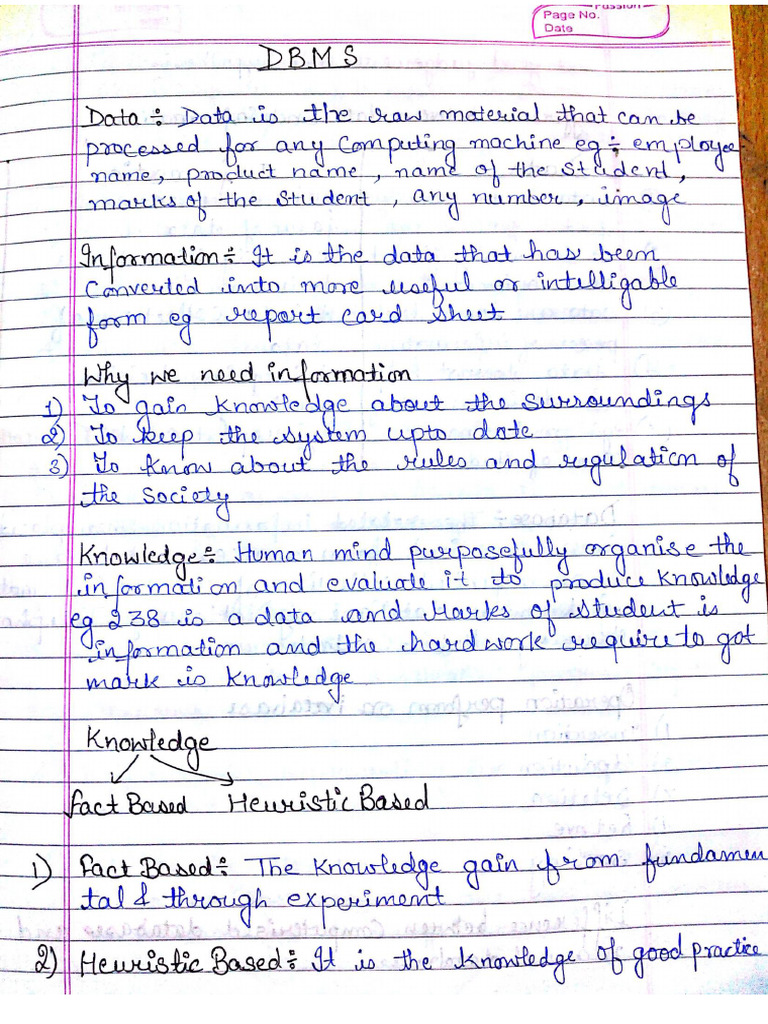 Passion
Page No.
Date
DBMS
Data ÷ Data is the raw material that can be
processed for any Computing machine eg ÷ employee
name, product name, name of the Student,
marks of the Student, any number, image
Information ÷ It is the data that has been
Converted into more useful or intelligable
form eg report card sheet
Why we need information
1) To gain knowledge about the surroundings
2) To keep the system upto date
3) To Know about the rules and regulation of
the Society
Knowledge ÷ Human mind purposefully organise the
information and evaluate it to produce Knowledge
eg 238 is a data and Marks of student is
information and the hardwork require to got
mark is Knowledge
Knowledge
Fact Based Heuristic Based
1) Fact Based ÷ The Knowledge gain from fundamen
tal & through experiment
2) Heuristic Based ÷ It is the Knowledge of good practice